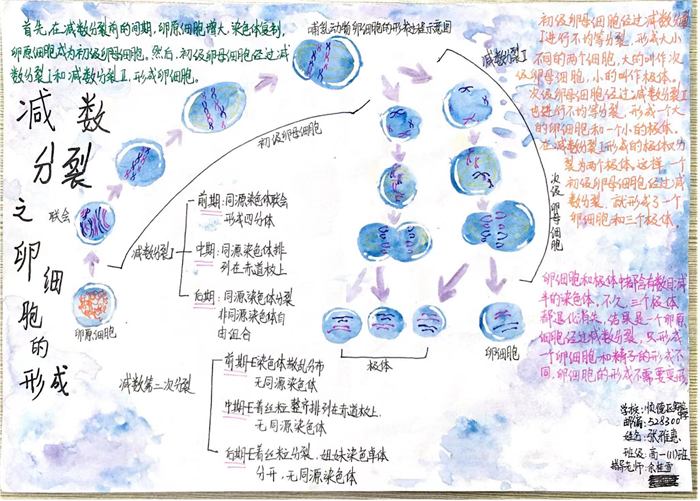 首先,在减数分裂前的间期,卵原细胞增大,染色体复制,
卵原细胞成为初级卵母细胞。然后,初级卵母细胞经过减
数分裂Ⅰ和减数分裂Ⅱ,形成卵细胞。
哺乳动物卵细胞的形成过程示意图
减数分裂之卵细胞的形成
联会
卵原细胞
初级卵母细胞
减数分裂Ⅰ
次级卵母细胞
减数分裂Ⅰ
前期:同源染色体联会
形成四分体
中期:同源染色体排
列在赤道板上
后期:同源染色体分裂
非同源染色体自
由组合
极体
卵细胞
减数第二次分裂
前期E染色体散乱分布
无同源染色体
中期E着丝粒整齐排列在赤道板上,
无同源染色体
后期E着丝粒分裂,姐妹染色单体
分开,无同源染色体
初级卵母细胞经过减数分裂
Ⅰ进行不均等分裂,形成大小
不同的两个细胞,大的叫作次
级卵母细胞,小的叫作极体。
次级卵母细胞经过减数分裂Ⅱ
也进行不均等分裂,形成一个大
的卵细胞和一个小的极体。
在减数分裂Ⅰ形成的极体也分
裂为两个极体。这样,一个
初级卵母细胞经过减
数分裂,就形成了一个
卵细胞和三个极体。
卵细胞和极体中都含有数目减
半的染色体。不久,三个极体
都退化消失,结果是一个卵原
细胞经过减数分裂,只形成
一个卵细胞和精子的形成不
同,卵细胞的形成不需要变形
学校:
邮编:528300
姓名:张雅惠
班级:高一(11)班
指导老师: